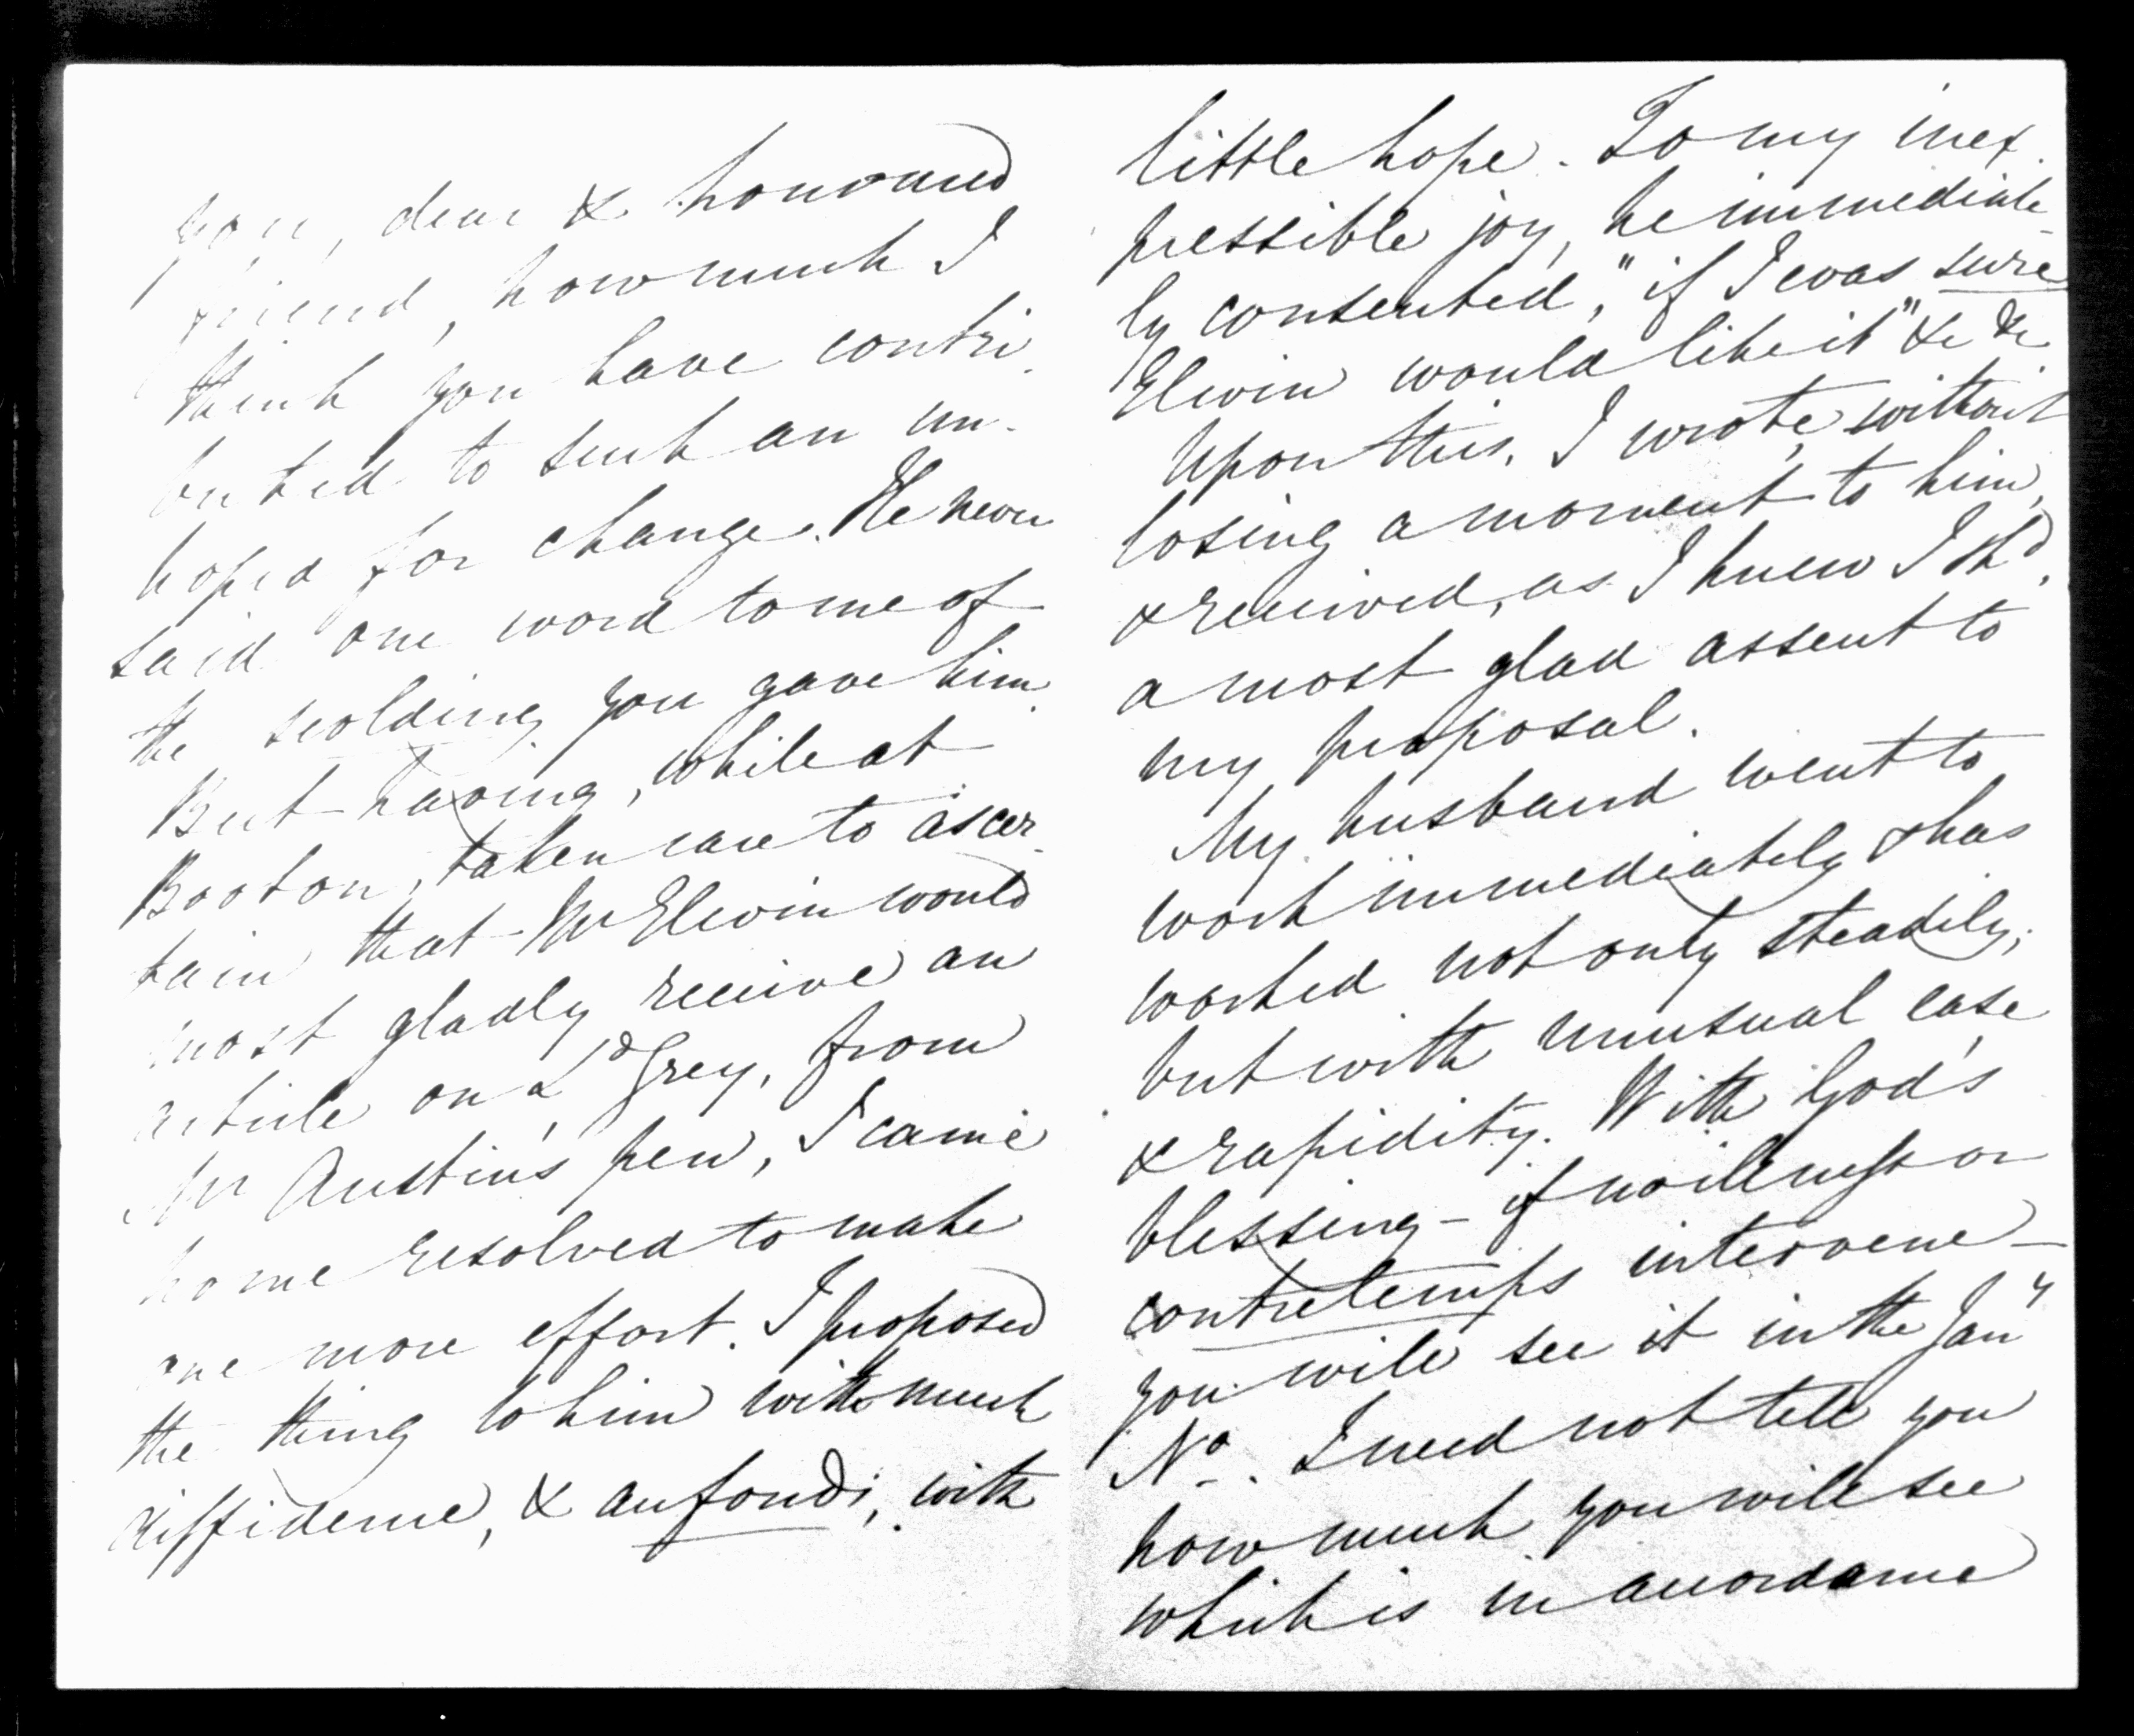 you, dear & honoured
friend, how much I
think you have contri-
buted to such an un-
hoped for change. He never
said one word to me of
the scolding you gave him.
But having, while at
Booton, taken care to ascer-
tain that Mr Elwin would
most gladly receive an
article on Ld Grey, from
Mr Austin's pen, I came
home resolved to make
one more effort. I proposed
the thing to him with much
diffidence, & au fond, with
little hope. To my inex-
pressible joy, he immediate-
ly consented, "if I was sure
Elwin would like it" &c &c
Upon this, I wrote, without
losing a moment to him,
& received, as I knew I shd,
a most glad assent to
my proposal.
My husband went to
work immediately & has
worked not only steadily,
but with unusual ease
& rapidity. With God's
blessing - if no illness or
contretemps intervene -
you will see it in the Jany
No. I need not tell you
how much you will see
which is in accordance